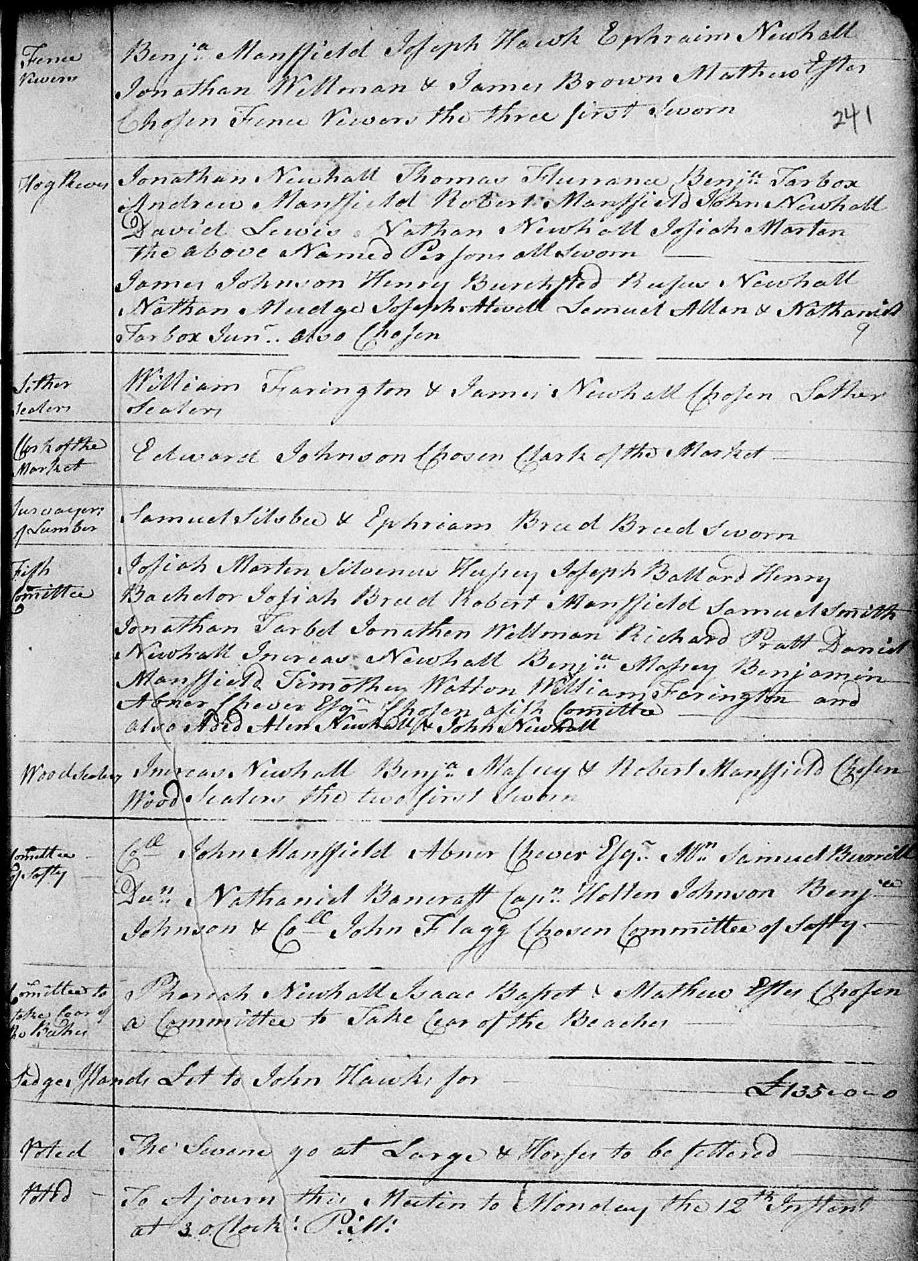 Fence
Viewers
Benj.a Mansfield Joseph Hawk Ephraim Newhall
Jonathan Wellman & James Brown Mathew Estes
Chosen Fence Viewers the three first Sworn
241
Hog Reves
Jonathan Newhall Thomas Flurrance Benj.a Tarbox
Andrew Mansfield Robert Mansfield John Newhall
David Lewis Nathan Newhall Josiah Martan
the above Named Persons all Sworn
James Johnson Henry Burchsted Rufus Newhall
Nathan Mudge Joseph Atwell Lemuel Allan & Nathaniel
Tarbox Jun.r also Chosen
9
Lether
Sealers
William Farington & James Newhall Chosen Lather
Sealers
Clerk of the
Market
Edward Johnson Chosen Clark of the Market
Survayers
of Lumber
Samuel Silsbee & Ephriam Breed Breed Sworn
Fish
Comittee
Josiah Marten Silvenus Hussey Joseph Ballard Henry
Bachelor Josiah Breed Robert Mansfield Samuel Smith
Jonathan Tarbel Jonathen Wellman Richard Pratt Daniel
Newhall Increas Newhall Benj.a Massey Benjamin
Mansfield Timothey Watton William Farington and
Abner Chever Esq.r Chosen a fish Comitte
also Aded Alen Newhall & John Newhall
Wood Sealers
Increas Newhall Benj.a Massey & Robert Mansfield Chosen
Wood Sealers the two first Sworn
Comittee
of Safty
Coll John Mansfield Abner Chever Esq.r Samuel Burrill
Dea.n Nathaniel Bancraft Cap.n Holten Johnson Benj.a
Johnson & Coll John Flagg Chosen Committee of Safty
Comittee to
take Car of
the Beches
Pharoah Newhall Isaac Basset & Mathew Estes Chosen
a Committee to Take Car of the Beaches
Islands Let to John Hawks for
£135-0-0
Voted
The Swane go at Large & Horses to be fettered
Voted
To Ajourn this Meetin to Monday the 12th Instent
at 3 oClock P:M: